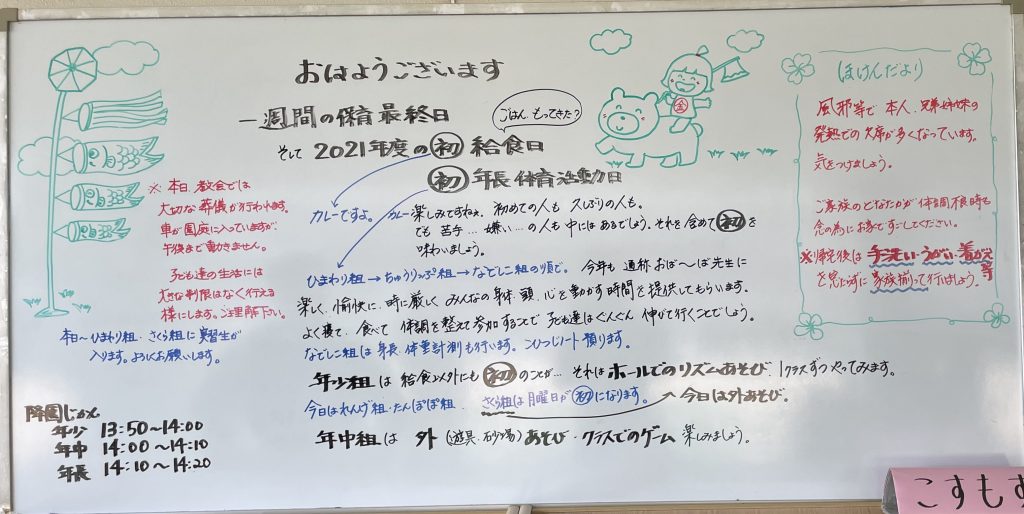 おはようございます
一週間の保育最終日
ごはん、もってきた?
そして 2021年度の 初 給食日
初 年長 体育活動日
カレーですよ。
カレー楽しみですねぇ。初めての人も 久しぶりの人も。
でも 苦手… 嫌い… の人も 中にはあるでしょう。それを含めて 初 を
味わいましょう。
ひまわり組→ちゅうりっぷ組→なでしこ組の順で。今年も 通称 おば〜ば先生に
楽しく、愉快に、時に厳しく みんなの身体、頭、心を動かす時間を提供してもらいます。
よく寝て、食べて 体調を整えて参加することで 子ども達は ぐんぐん 伸びて行くことでしょう。
なでしこ組は 身長・体重計測も行います。こひつじノート預ります。
年少組は 給食以外にも 初 のことが… それは ホールでのリズムあそび、1クラスずつやってみます。
今日は れんげ組・たんぽぽ組、さくら組は月曜日が 初 になります。 今日は外あそび。
年中組は 外(遊具・砂場)あそび・クラスでのゲーム 楽しみましょう。
※本日、教会では
大切な葬儀が行われます。
車が園庭に入っていますが
午後まで動きません。
子ども達の生活には
大きな制限はなく行える
様にします。ご理解下さい。
本日〜ひまわり組・さくら組に実習生が
入ります。よろしくお願いします。
降園じかん
年少 13:50〜14:00
年中 14:00〜14:10
年長 14:10〜14:20
金
ほけんだより
風邪等で 本人、兄弟姉妹の
発熱での欠席が多くなっています。
気をつけましょう。
ご家族のどなたかが体調不良時も
念の為にお休みにしてください。
※帰宅後は 手洗い・うがい・着がえ等
を忘れずに家族揃って行いましょう。
こすもす